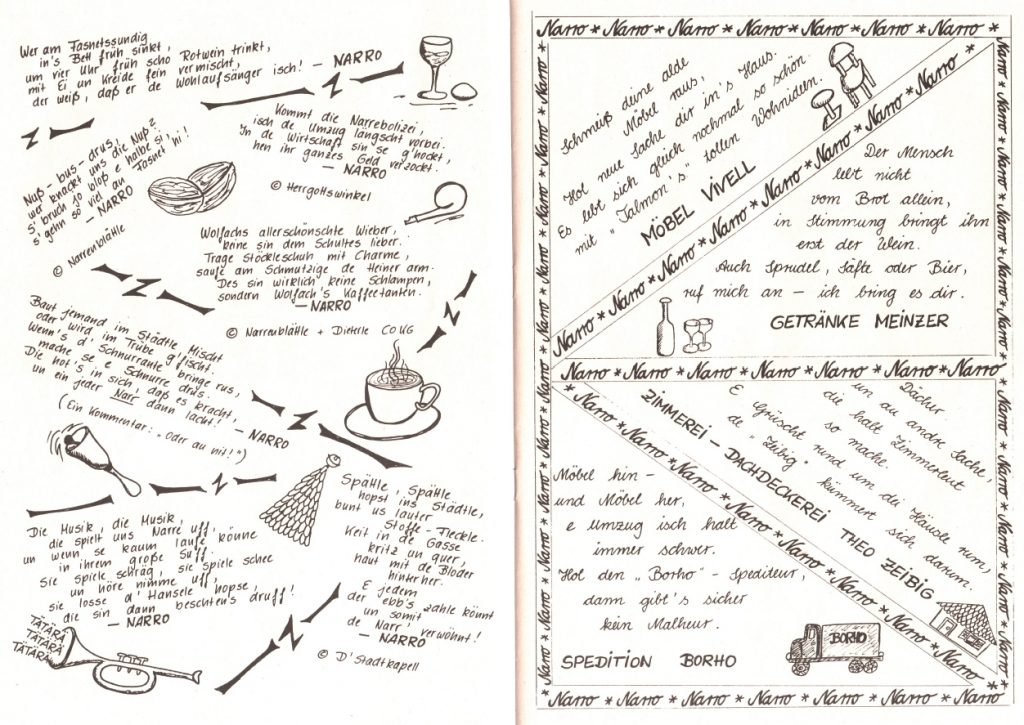 Wer am Fasnetssundig
in's Bett früh sinkt,
um vier Uhr früh scho Rotwein trinkt,
mit Ei un Kreide fein vermischt,
der weiß, daß er de Wohlaufsänger isch! – NARRO
Kommt die Narrebolizei,
isch de Umzug längscht vorbei.
In de Wirtschaft sin se g'hockt,
hen ihr ganzes Geld verzockt.
– NARRO
© Herrgottswinkel
Nuß – bus – drus,
wer knackt uns die Nuß?
S' bruch jo bloß e halbe si,
s' gehn so viel an Fasnet hi!
– NARRO
© Narrenblättle
Wolfachs allerschönschte Wieber,
keine sin dem Schultes lieber.
Trage Stöckleschuh mit Charme,
saufe am Schmutzige de Heiner arm.
Des sin wirklich keine Schlampen,
sondern Wolfach's Kaffeetanten.
– NARRO
© Narrenblättle + Dieterle COUG
Baut jemand im Städtle Mischt
oder wird im Trübe g'fischt.
Wenn's d' Schnurrante bringe rus,
mache se e Schnurre drus.
Die hot's in sich, daß es kracht,
un ein jeder Narr dann lacht! – NARRO
(Ein Kommentar: „Oder au nit!")
Spättle, Spättle
hopst ins Städtle,
bunt us lauter
Stoffe-Fleckle.
Keil in de Gasse
kritz un quer,
haut mit de Bloder
hinterher.
E jedem
der ebb's zahle könnt
un somit
de Narr verwöhnt!
– NARRO
© D' Stadtkapell
Die Musik, die Musik,
die spielt uns Narre uff,
un wenn se kaum laufe könne
in ihrem große Suff.
Sie spiele schräg, sie spiele schee
un höre nimme uff,
sie losse d' Hansele hopse,
die sin dann beschtens druff!
– NARRO
TÄTÄRÄ
TÄTÄRÄ
TÄTÄRÄ
Narro * Narro * Narro * Narro * Narro * Narro * Narro
Schmeiß deine alde
Möbel raus,
Hol neue Sache dir in's Haus.
Es lebt sich gleich nochmal so schön.
mit „Talmon's" tollen Wohnideen.
MÖBEL VIVELL
Narro * Narro * Narro * Narro * Narro * Narro * Narro * Narro
Der Mensch
lebt nicht
vom Brot allein,
in Stimmung bringt ihn
erst der Wein.
Auch Sprudel, Säfte oder Bier,
ruf mich an – ich bring es dir.
GETRÄNKE MEINZER
Narro * Narro * Narro * Narro * Narro * Narro * Narro
Dächer
un au andre Sache,
die halt Zimmerleut
so mache.
E Grüscht rund um die Häusle rum,
de „Zeibig" kümmert sich darum.
ZIMMEREI – DACHDECKEREI THEO ZEIBIG
* Narro * Narro * Narro * Narro * Narro * Narro * Narro *
Möbel hin –
und Möbel her,
e Umzug isch halt
immer schwer.
Hol den „Borho" – Spediteur,
dann gibt's sicher
kein Malheur.
BORHO
SPEDITION BORHO
Narro * Narro * Narro * Narro * Narro * Narro * Narro *